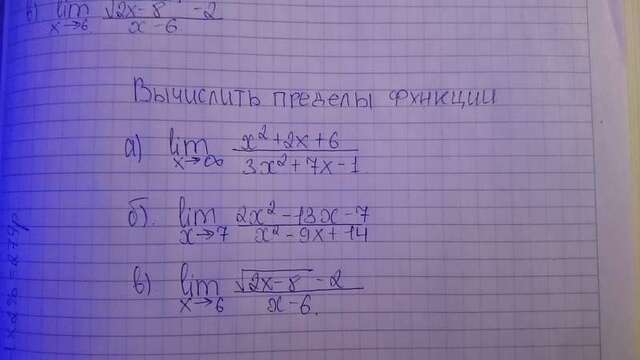 в) lim x→6 (√(2x-8) -2)/(x-6)
Вычислить пределы функции
а) lim x→∞ (x²+2x+6)/(3x²+7x-1)
б). lim x→7 (2x²-13x-7)/(x²-9x+14)
в) lim x→6 (√(2x-8) -2)/(x-6).